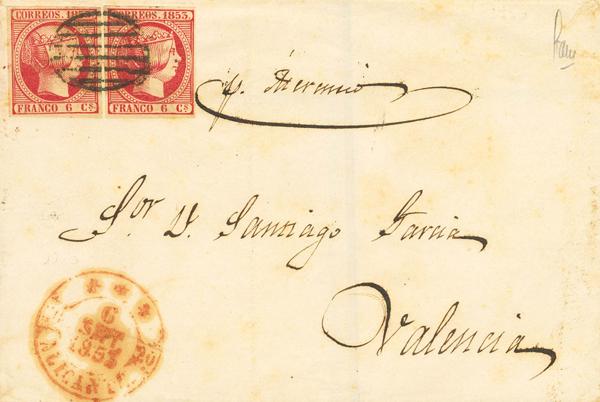 CORREOS. 1853. CORREOS. 1853.
FRANCO 6 Cs FRANCO 6 Cs
p. Mercurio
Sor D. Santiago Garcia
Valencia
6
SET
1853
ALICANTE